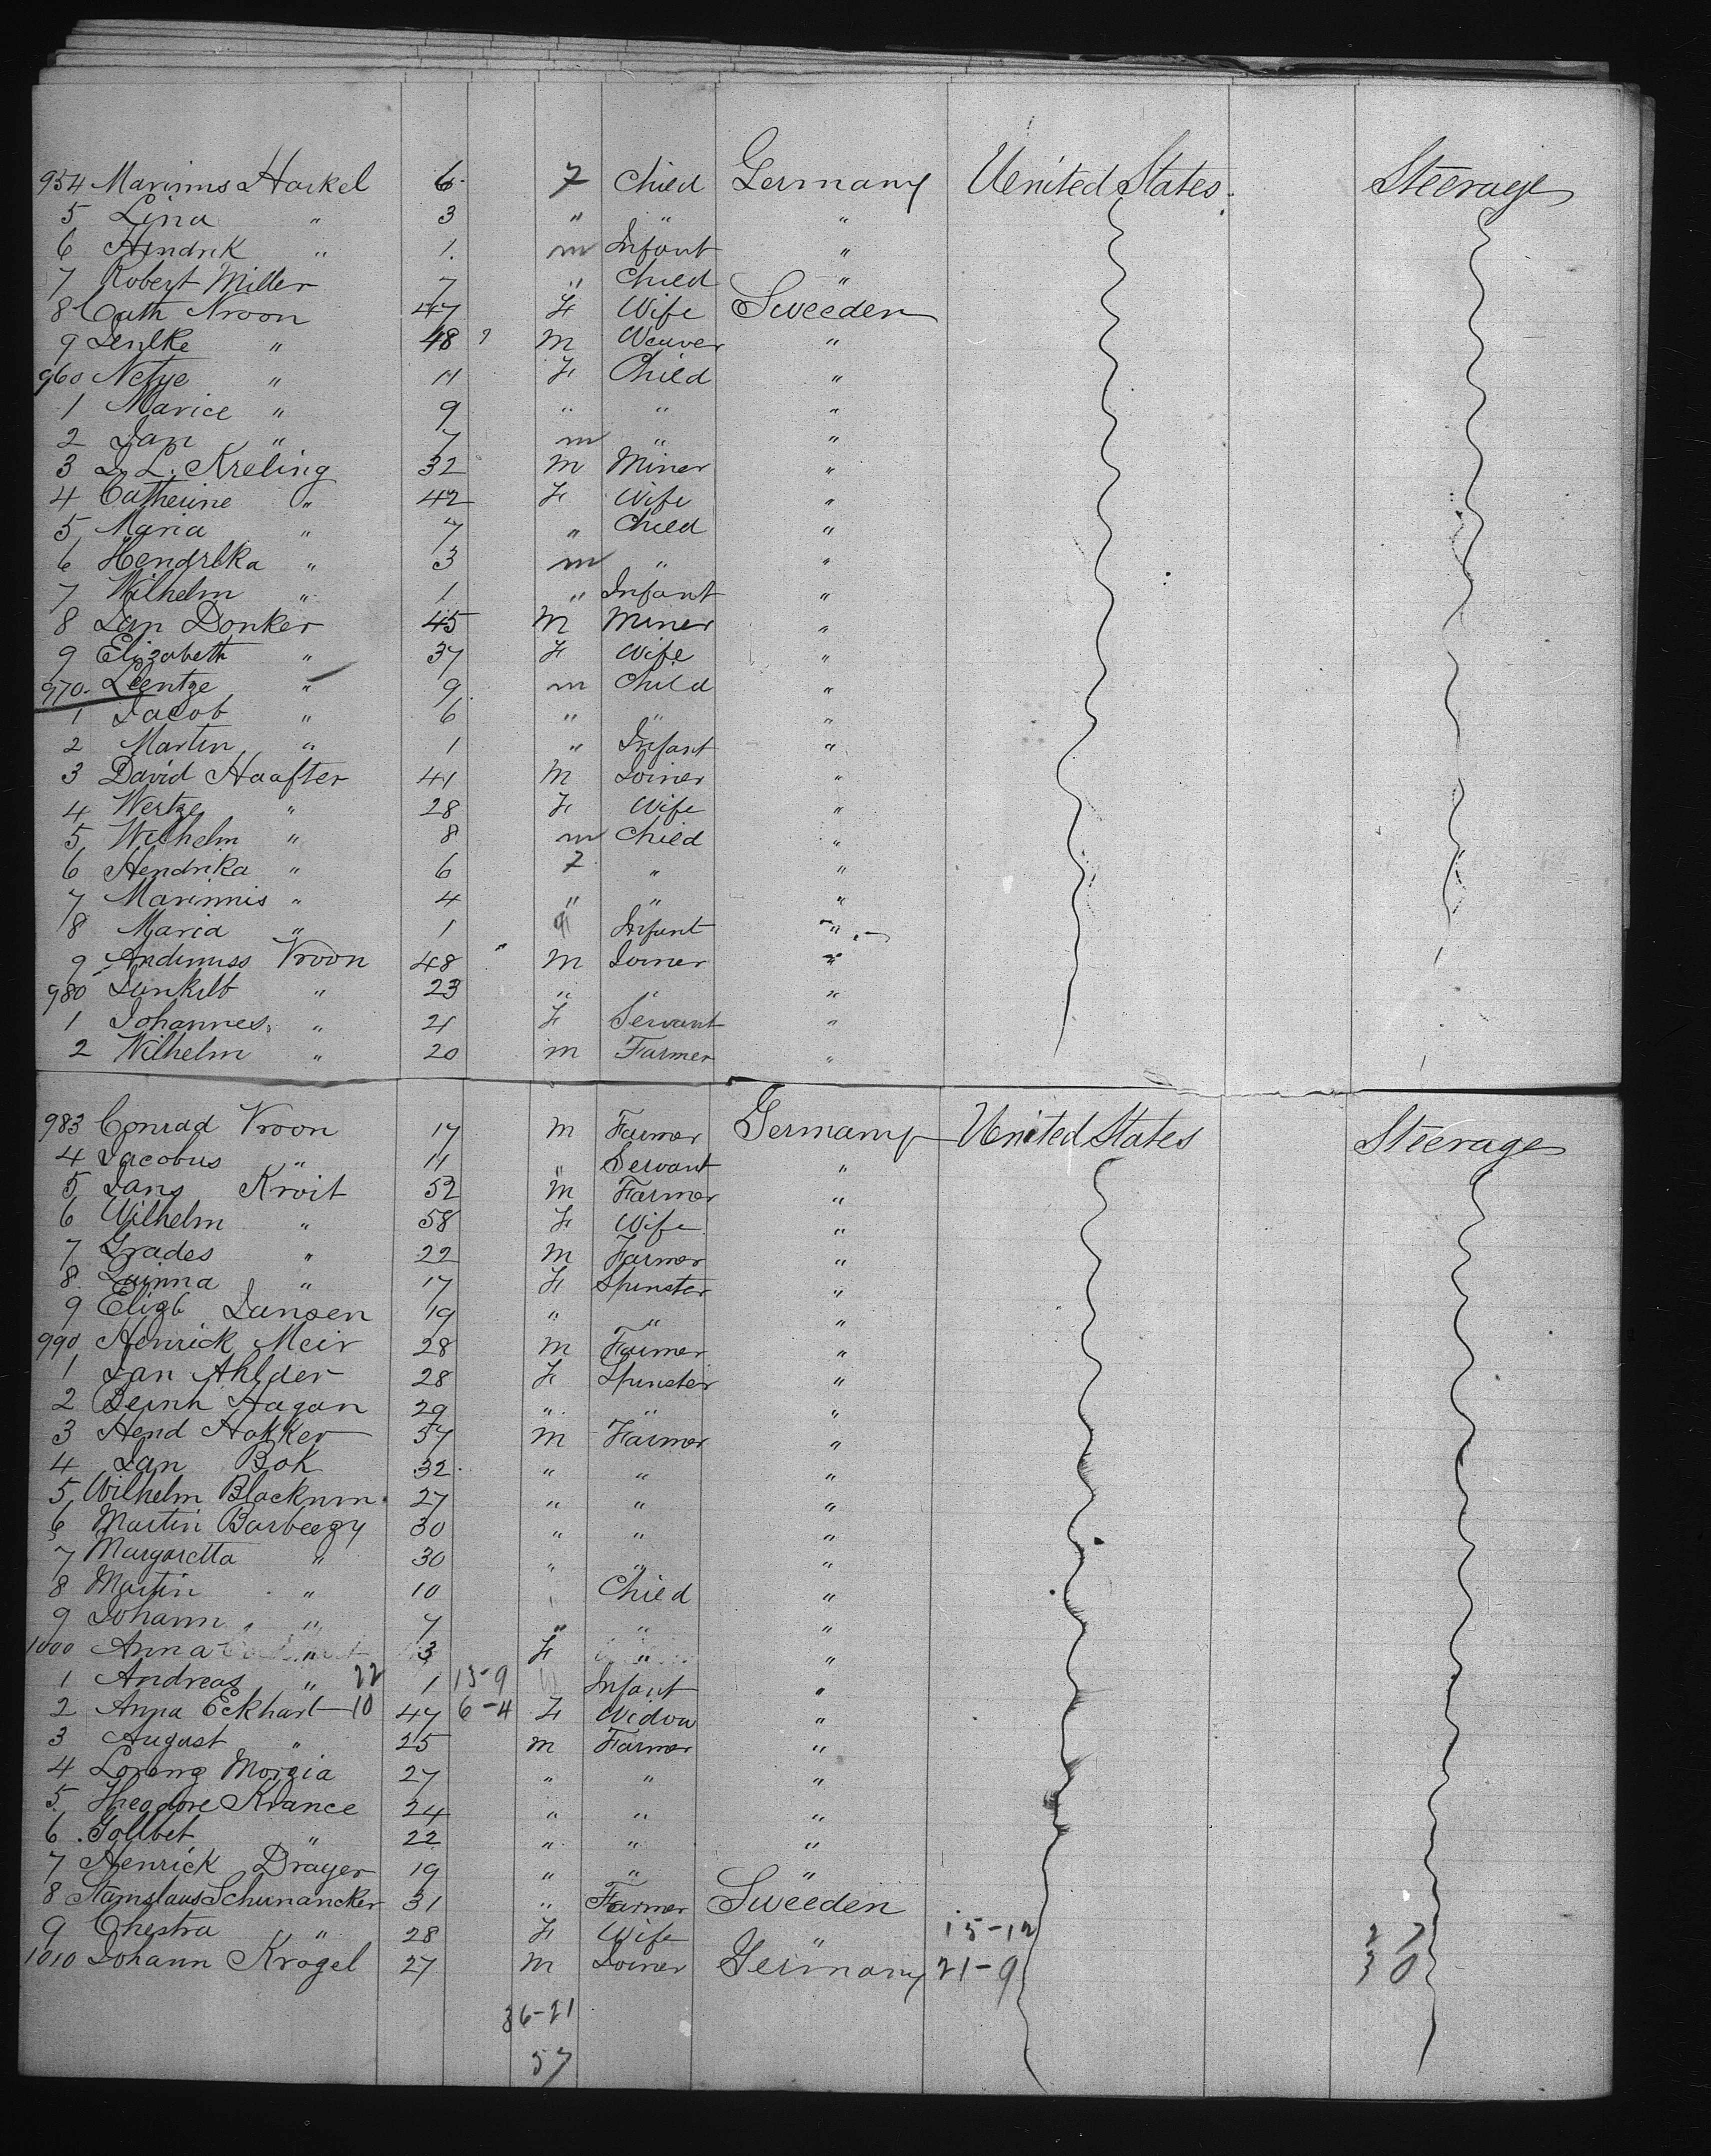 954 Marinus Harkel 6 7 Child Germany United States. Steerage
5 Lina " 3 " " "
6 Hendrik " 1. m Infant "
7 Robert Miller 7 " Child "
8 Cath Vroon 47 F Wife Sweeden
9 " 48 m Weaver "
960 Netye " 11 F Child "
1 Marice " 9 " " "
2 Jan " 7 m " "
3 J. L. Kreling 32 m Miner "
4 Catherine " 42 F Wife "
5 Maria " 7 " Child "
6 Hendrlka " 3 m " "
7 Wilhelm " 1 " Infant "
8 Jan Donker 45 m Miner "
9 Elizabeth " 37 F Wife "
970. Leentze " 9 m Child "
1 Jacob " 6 " " "
2 Martin " 1 " Infant "
3 David Haafter 41 m Joiner "
4 Wertze " 28 F Wife "
5 Wilhelm " 8 m Child "
6 Hendrika " 6 7 " "
7 Marinnis " 4 " " "
8 Maria " 1 Infant "
9 Andimuss Vroon 48 " m Joiner "
980 " 23 " " "
1 Johannes " 21 F Servant "
2 Wilhelm " 20 m Farmer "
983 Conrad Vroon 17 m Farmer Germany United States Steerage
4 Jacobus " 11 " Servant "
5 Jans Kroit 52 m Farmer "
6 Wilhelm " 58 F Wife "
7 Grades " 22 m Farmer "
8 " 17 F Spinster "
9 Elizb Jansen 19 " " "
990 Henrick Meir 28 m Farmer "
1 Jan Ahlder 28 F Spinster "
2 Bernh Hagan 29 " " "
3 Hend Hakker 37 m Farmer "
4 Jan Bok 32 " " "
5 Wilhelm Blacknm 27 " " "
6 Martin Barbeezy 30 " " "
7 Margaretta " 30 " " "
8 Martin " 10 Child "
9 Johann " 7 " " "
1000 Anna " 3 F " "
1 Andreas " 22 1 13-9 Infant "
2 Anna Eckhart 10 47 6-4 F Widow "
3 August " 25 m Farmer "
4 Loreng Morgia 27 " " "
5 Theodore Krance 24 " " "
6 " 22 " " "
7 Henrick Drayer 19 " " "
8 Stanislaus Schunancker 31 " Farmer Sweeden
9 Chestra " 28 F Wife " 15-12 27
1010 Johann Krogel 27 m Joiner Germany 21-9 30
36-21
57